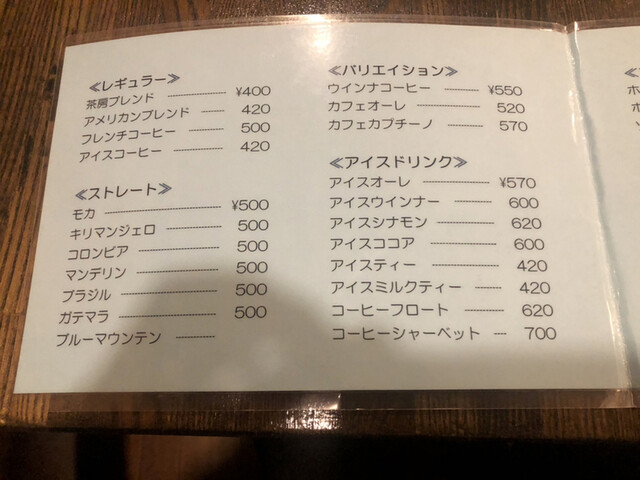 ≪レギュラー≫
茶房ブレンド ¥400
アメリカンブレンド 420
フレンチコーヒー 500
アイスコーヒー 420
≪ストレート≫
モカ ¥500
キリマンジェロ 500
コロンビア 500
マンデリン 500
ブラジル 500
ガテマラ 500
ブルーマウンテン
≪バリエイション≫
ウインナコーヒー ¥550
カフェオーレ 520
カフェカプチーノ 570
≪アイスドリンク≫
アイスオーレ ¥570
アイスウインナー 600
アイスシナモン 620
アイスココア 600
アイスティー 420
アイスミルクティー 420
コーヒーフロート 620
コーヒーシャーベット 700